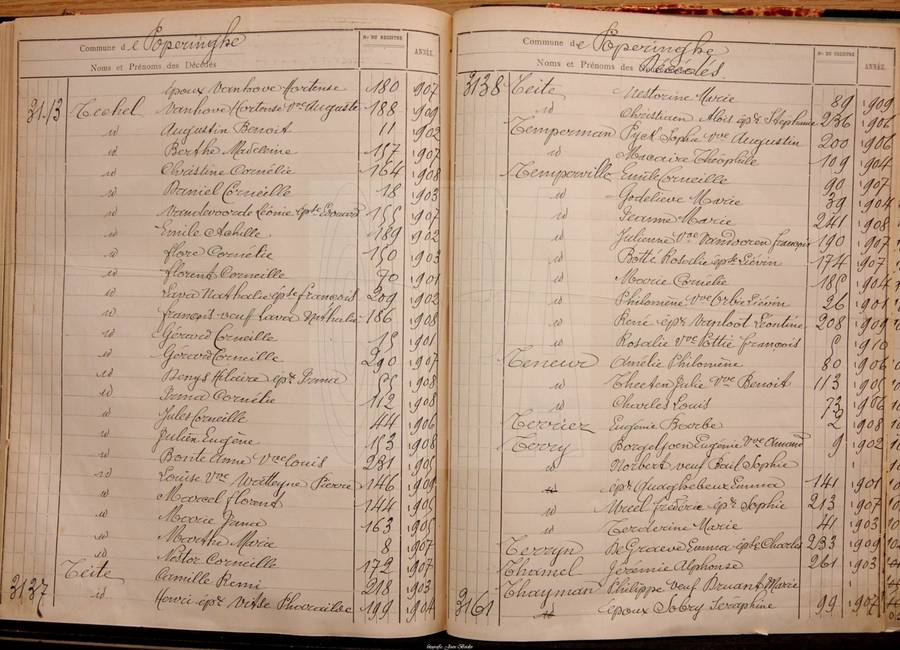 Commune de Poperinghe
Noms et Prénoms des Décédés
No DU REGISTRE
ANNÉE.
époux Vanhove Hortense 180 1907
3113 Techel Vanhove Hortense Vve Auguste 188 1909
id Augustin Benoit 11 1902
id Berthe Madeleine 157 1907
id Christine Cornélie 164 1908
id Daniel Corneille 18 1903
id Vandevoorde Léonie épse Edouard 155 1907
id Emile Achille 189 1902
id Flore Cornélie 150 1903
id Florent Corneille 70 1901
id Lava Nathalie épse François 209 1902
id François veuf Lava Nathalie 186 1908
id Gérard Corneille 15 1901
id Gérard Corneille 290 1907
id Denys Hilaire épx Irma 1908
id Irma Cornélie 112 1908
id Jules Corneille 44 1906
id Julien Eugène 153 1908
id Bonte Anne Vve Louis 231 1905
id Louise Vve Walleyne Pierre 146 1909
id Marcel Florent 144 1905
id Marie Irma 163 1905
id Marthe Marie 8 1907
id Nestor Corneille 172 1907
Teite Camille Remi 218 1903
3137 id Henri épx Vitse Pharaïlde 199 1904
Commune de Poperinghe
Noms et Prénoms des Décédés.
No DU REGISTRE
ANNÉE.
3138 Teite Nestorine Marie 89 1909
id Christiaen Aloïs épx Stephanie 236 1906
Temperman Pyck Sophie Vve Augustin 200 1906
id Macaire Théophile 109 1904
Temperville Emile Corneille 90 1907
id Godelieve Marie 39 1904
id Jeanne Marie 241 1908
id Julienne Vve Vandooren François 190 1907
id Botté Rosalie épse Liévin 174 1907
id Marie Cornélie 185 1904
id Philomène Vve Orbie Liévin 26 1901
id René épx Vanloot Léontine 208 1909
id Rosalie Vve Pottie François 1910
Teneur Amélie Philomène 80 1906
id Theeten Julie Vve Benoit 113 1905
id Charles Louis 73 1906
Terrier Eugénie Barbe 2 1908
Terry Eugénie Vve 9 1902
id Norbert veuf Bail Sophie
id épx Quaghebeur Emma 141 1901
id Ureel Frédéric épx Sophie 213 1907
id Marie 41 1903
Terryn De Graeve Emma épse Charles 233 1909
Thamel Jérémie Alphonse 261 1903
Thayman Philippe veuf Bruant Marie
3161 id époux Sobry Séraphine 99 1907